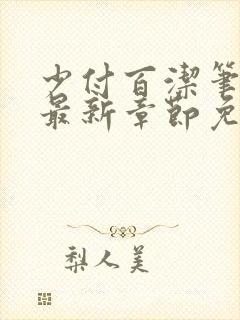 少付百潔筆
最新章節免
梨人美